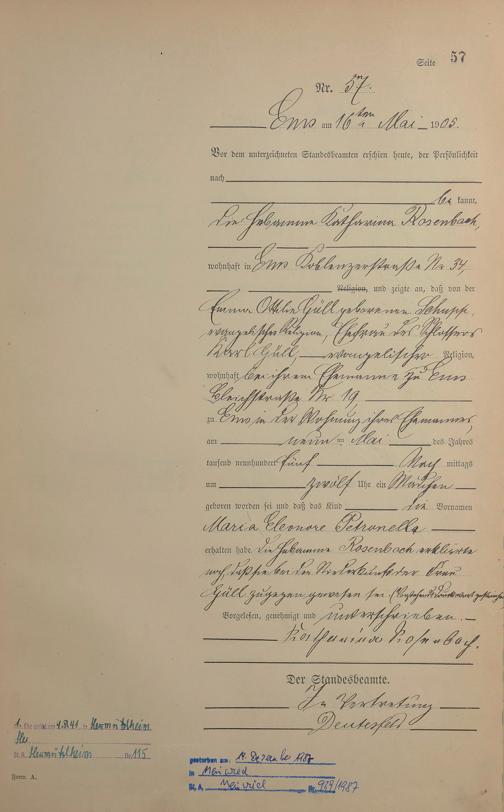 Seite 57
Nr. 57.
Ems am 16ten Mai 1905.
Vor dem unterzeichneten Standesbeamten erschien heute, der Persönlichkeit
nach
be kannt,
die Hebamme Katharina Rosenbach,
wohnhaft in Ems Koblenzerstraße Nr 34
Religion, und zeigte an, daß von der
Emma Ottilie Güll geborenen Schupp,
evangelischer Religion, Ehefrau des Schlossers
Karl Güll, evangelischer Religion,
wohnhaft bei ihrem Ehemanne zu Ems
Bleichstraße Nr 19
zu Ems in der Wohnung ihres Ehemannes,
am neun ten Mai des Jahres
tausend neunhundert fünf Nach mittags
um zwölf Uhr ein Mädchen
geboren worden sei und daß das Kind die Vornamen
Maria Eleonore Petronella
erhalten habe. Die Hebamme Rosenbach erklärte
noch, daß sie bei der Niederkunft der Frau
Güll zugegen gewesen sei.
Vorgelesen, genehmigt und unterschrieben.
Katharina Rosenbach.
Der Standesbeamte.
In Vertretung
1.
St. A. Nr 115
Form. A.
gestorben am: 14. Dezember 1987
in Neuwied
St. A. Neuwied Nr. 929/1987